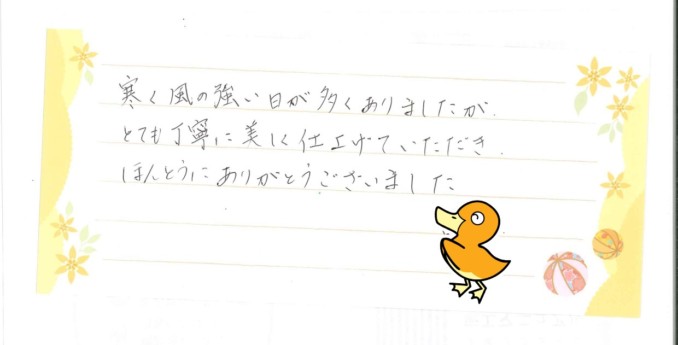 寒く風の強い日が多くありましたが、
とても丁寧に美しく仕上げていただき、
ほんとうにありがとうございました